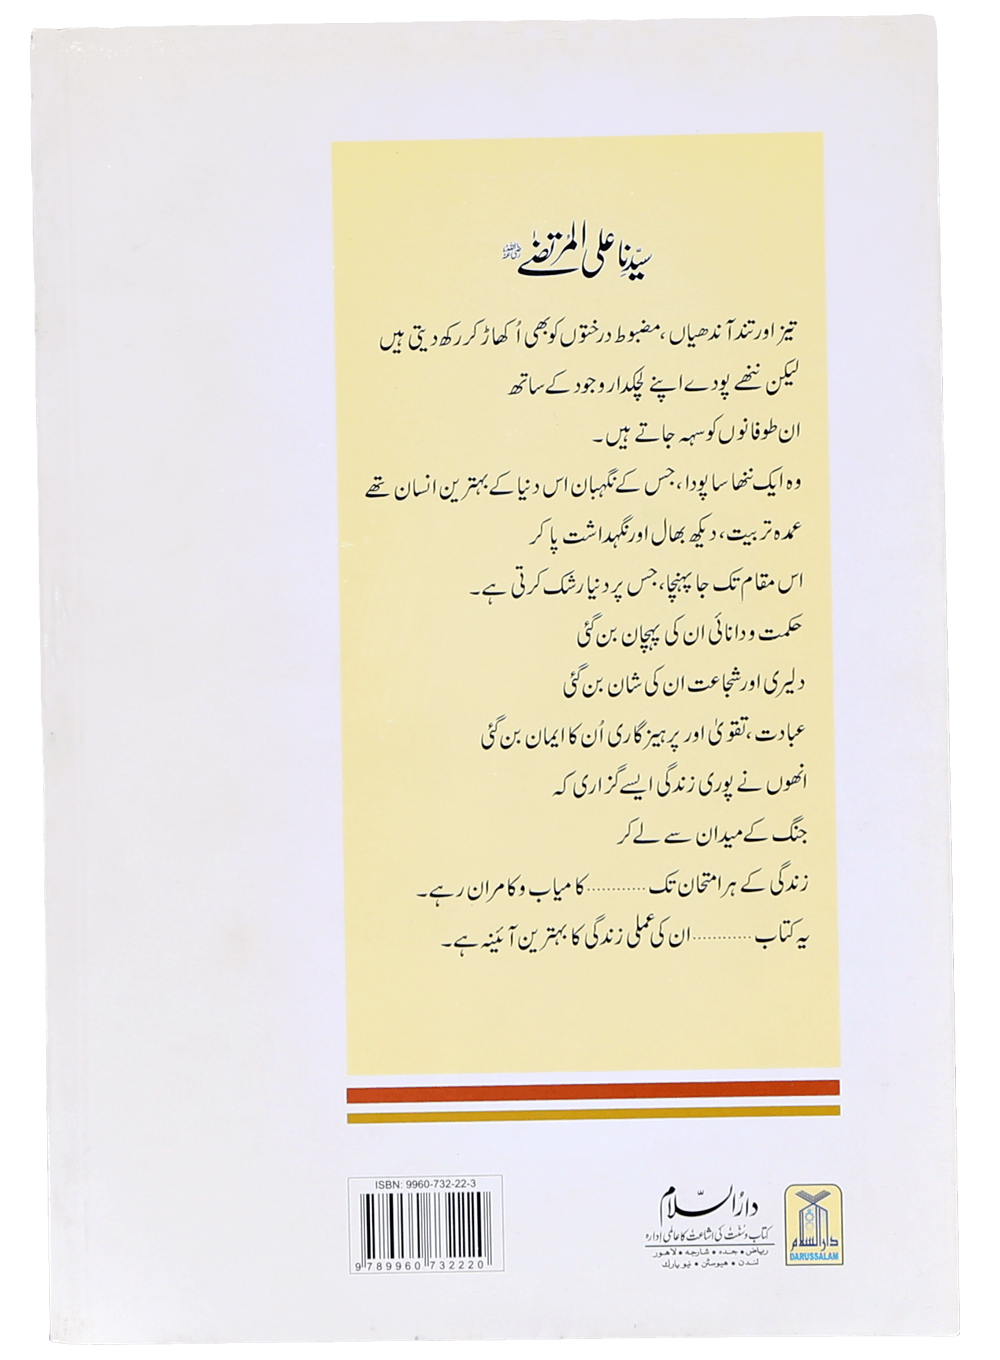 سیّدِنا علی المُرتضےٰ رضی اللہ عنہ
تیز اور تند آندھیاں، مضبوط درختوں کو بھی اُکھاڑ کر رکھ دیتی ہیں
لیکن ننھے پودے اپنے لچکدار وجود کے ساتھ
ان طوفانوں کو سہہ جاتے ہیں۔
وہ ایک ننھا سا پودا، جس کے نگہبان اس دنیا کے بہترین انسان تھے
عمدہ تربیت، دیکھ بھال اور نگہداشت پا کر
اس مقام تک جا پہنچا، جس پر دنیا رشک کرتی ہے۔
حکمت و دانائی ان کی پہچان بن گئی
دلیری اور شجاعت ان کی شان بن گئی
عبادت، تقویٰ اور پرہیزگاری اُن کا ایمان بن گئی
انھوں نے پوری زندگی ایسے گزاری کہ
جنگ کے میدان سے لے کر
زندگی کے ہر امتحان تک ............ کامیاب و کامران رہے۔
یہ کتاب ............ ان کی عملی زندگی کا بہترین آئینہ ہے۔
دارُالسّلام
کتاب و سنت کی اشاعت کا عالمی ادارہ
ریاض • جدہ • شارجہ • لاهور
لندن • هیوسٹن • نیو یارك
دارالسلام
DARUSSALAM
ISBN: 9960-732-22-3
9 789960 732220